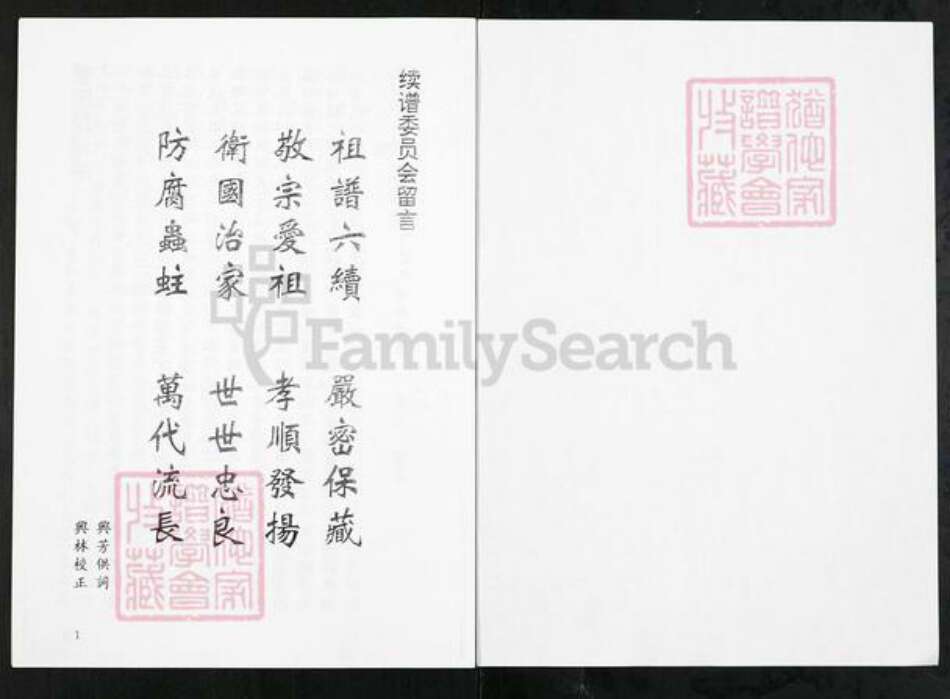 续谱委员会留言
祖譜六續 嚴密保藏
敬宗愛祖 孝順發揚
衛國治家 世世忠良
防腐蟲蛀 萬代流長
興芳供詞
興林校正
1
譜學會
收藏
FamilySearch